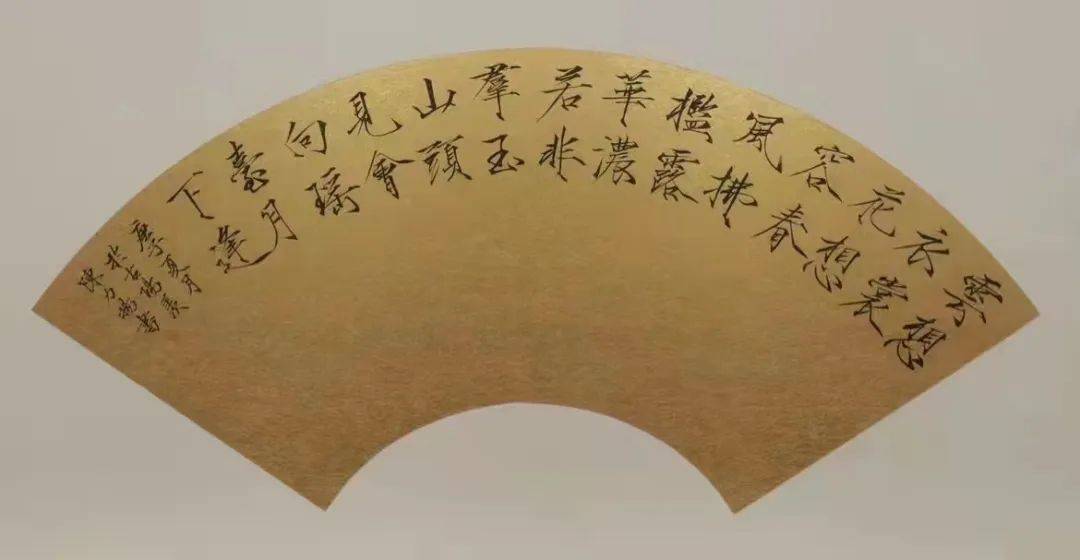 雲想
衣裳
花想
容春
風拂
檻露
華濃
若非
羣玉
山頭
見會
向瑤
臺月
下逢
庚子夏月
於古陽羨
陳力書